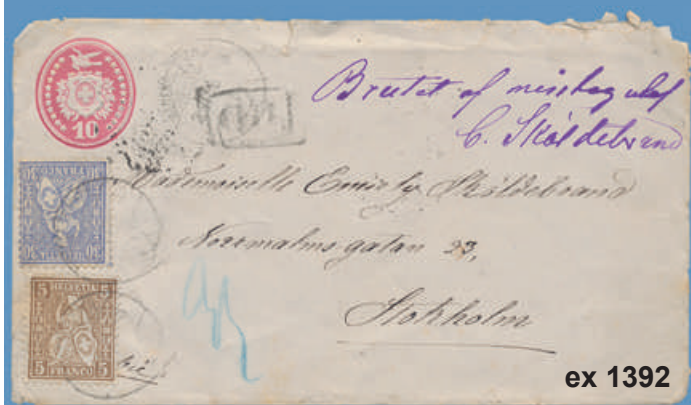 10
Brutet af misstag utaf
C. Sköldebrand
Mademoiselle Emialy Sköldebrand
Norrmalms gatan 23,
Stokholm
30
FRANCO
5 HELVETIA 5
5 FRANCO 5
ex 1392